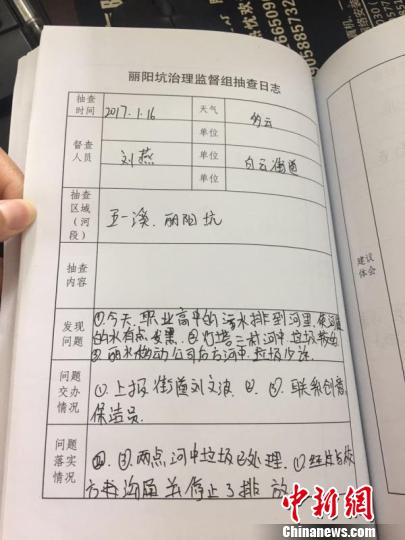 丽阳坑治理监督组抽查日志
抽查时间 2017.1.16 天气 多云
督查人员 单位
刘燕 单位 白云街道
抽查区域(河段) 五一溪、丽阳坑
抽查内容
发现问题 ①今天,职业高中的污水排到河里,使河道
的水有点发黑 ②灯塔三村河中垃圾较多
③丽水 公司后方河中垃圾
问题交办情况 ①上报街道刘文波 ②、③、联系创意
保洁员.
问题落实情况 ②、③、两点河中垃圾已处理. ①
方 沟通并停止了排放
建议体会
中新网
Chinanews.com